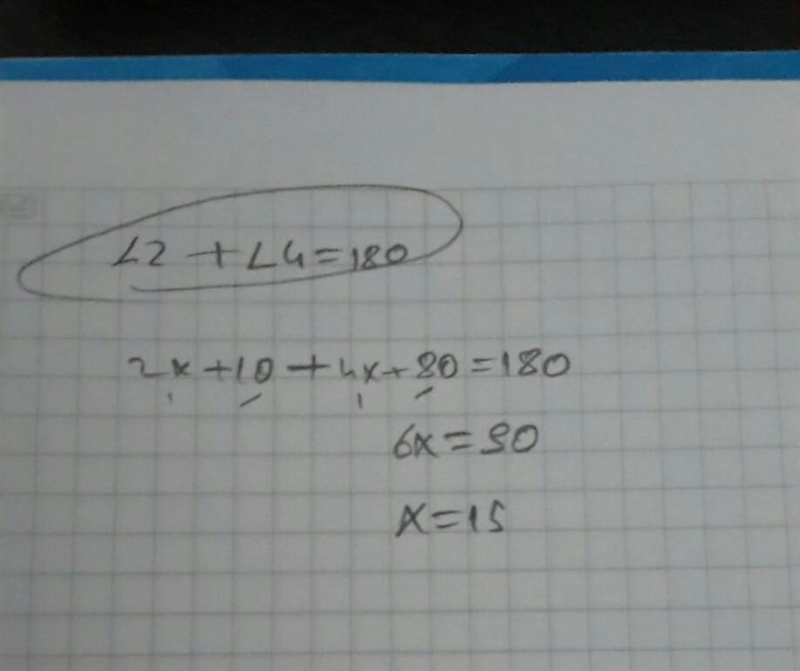 ∠2 + ∠4 = 180
2x + 10 + 4x + 80 = 180
6x = 90
x = 15